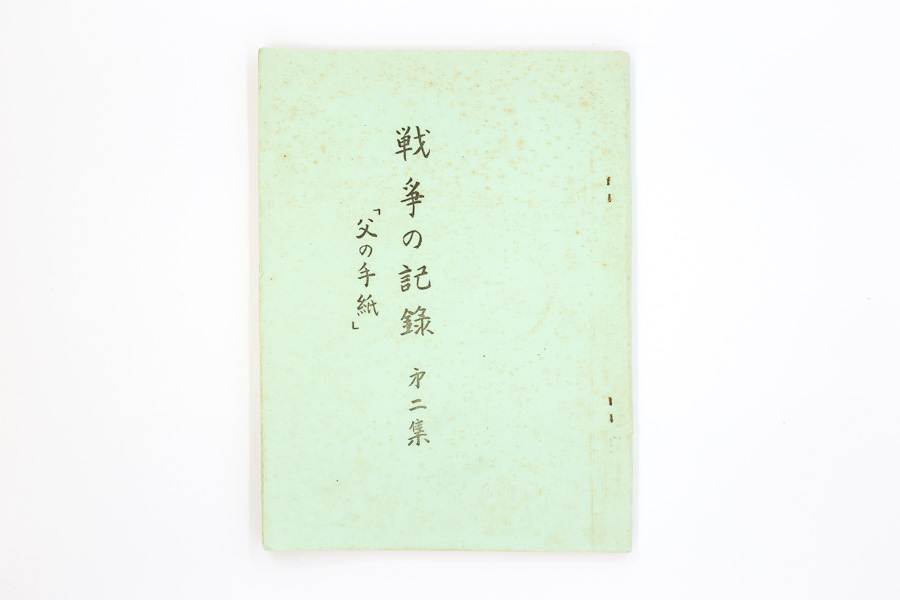 戦争の記録 第二集
「父の手紙」